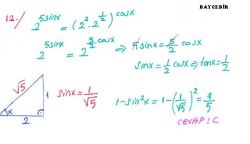 BAYCEBİR
12-) 2^5sinx = (2².2^1/2)^cosx
2^5sinx = 2^5/2 cosx ⇒ 5sinx = 5/2 cosx
sinx = 1/2 cosx ⇒ tanx = 1/2
√5 1 x 2
sinx = 1/√5
1-sin²x = 1-(1/√5)² = 4/5
CEVAP: C